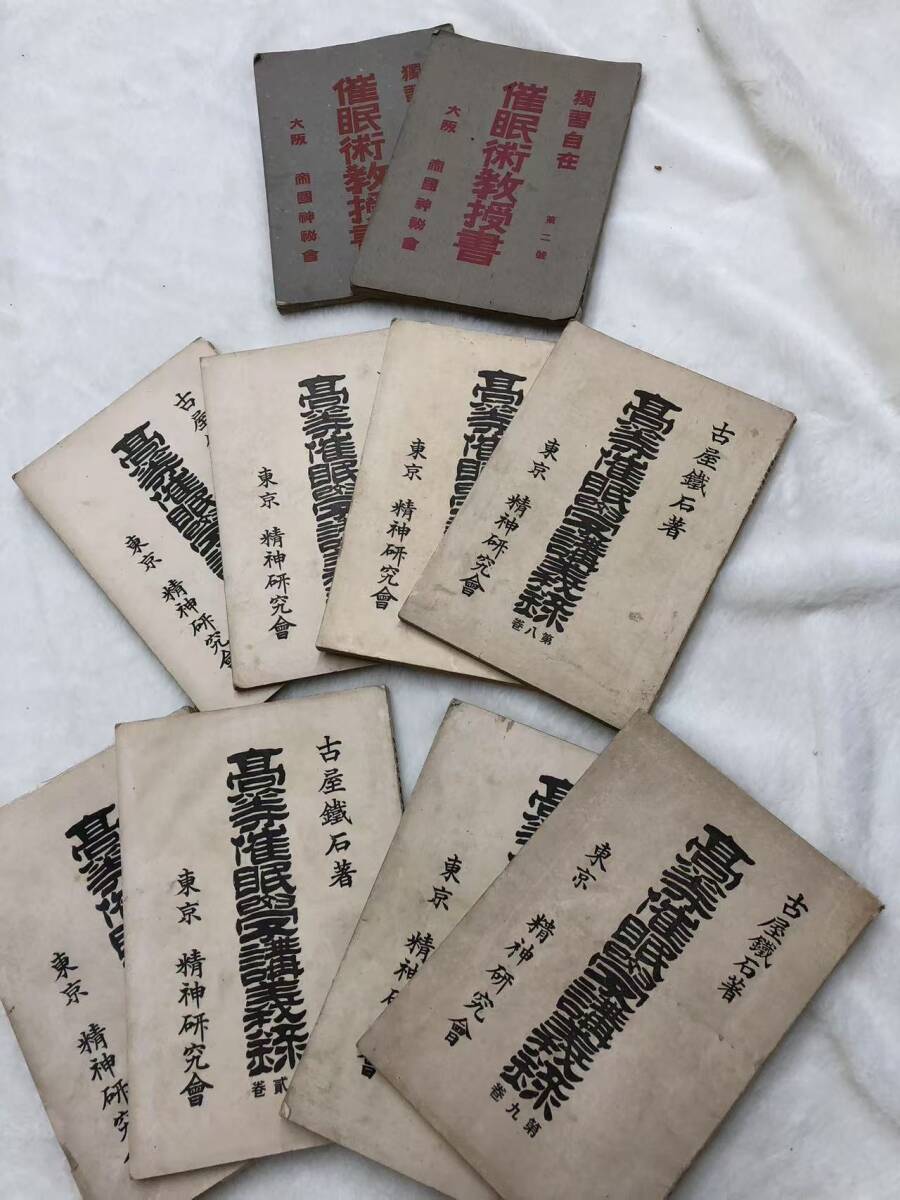 獨習
催眠術教授書
大阪 帝國神祕會
獨習自在
第二號
催眠術教授書
大阪 帝國神祕會
古屋
高等催眠學講
東京 精神研究會
高等催眠學講義
東京 精神研究會
高等催眠學
東京 精神研究會
古屋鐵石著
高等催眠學講義録
第八卷
東京 精神研究會
高等催
東京 精神研究會
古屋鐵石著
高等催眠學講義録
貳卷
東京 精神研究會
高等
東京 精神
古屋鐵石著
高等催眠學講義録
第九卷
東京 精神研究會